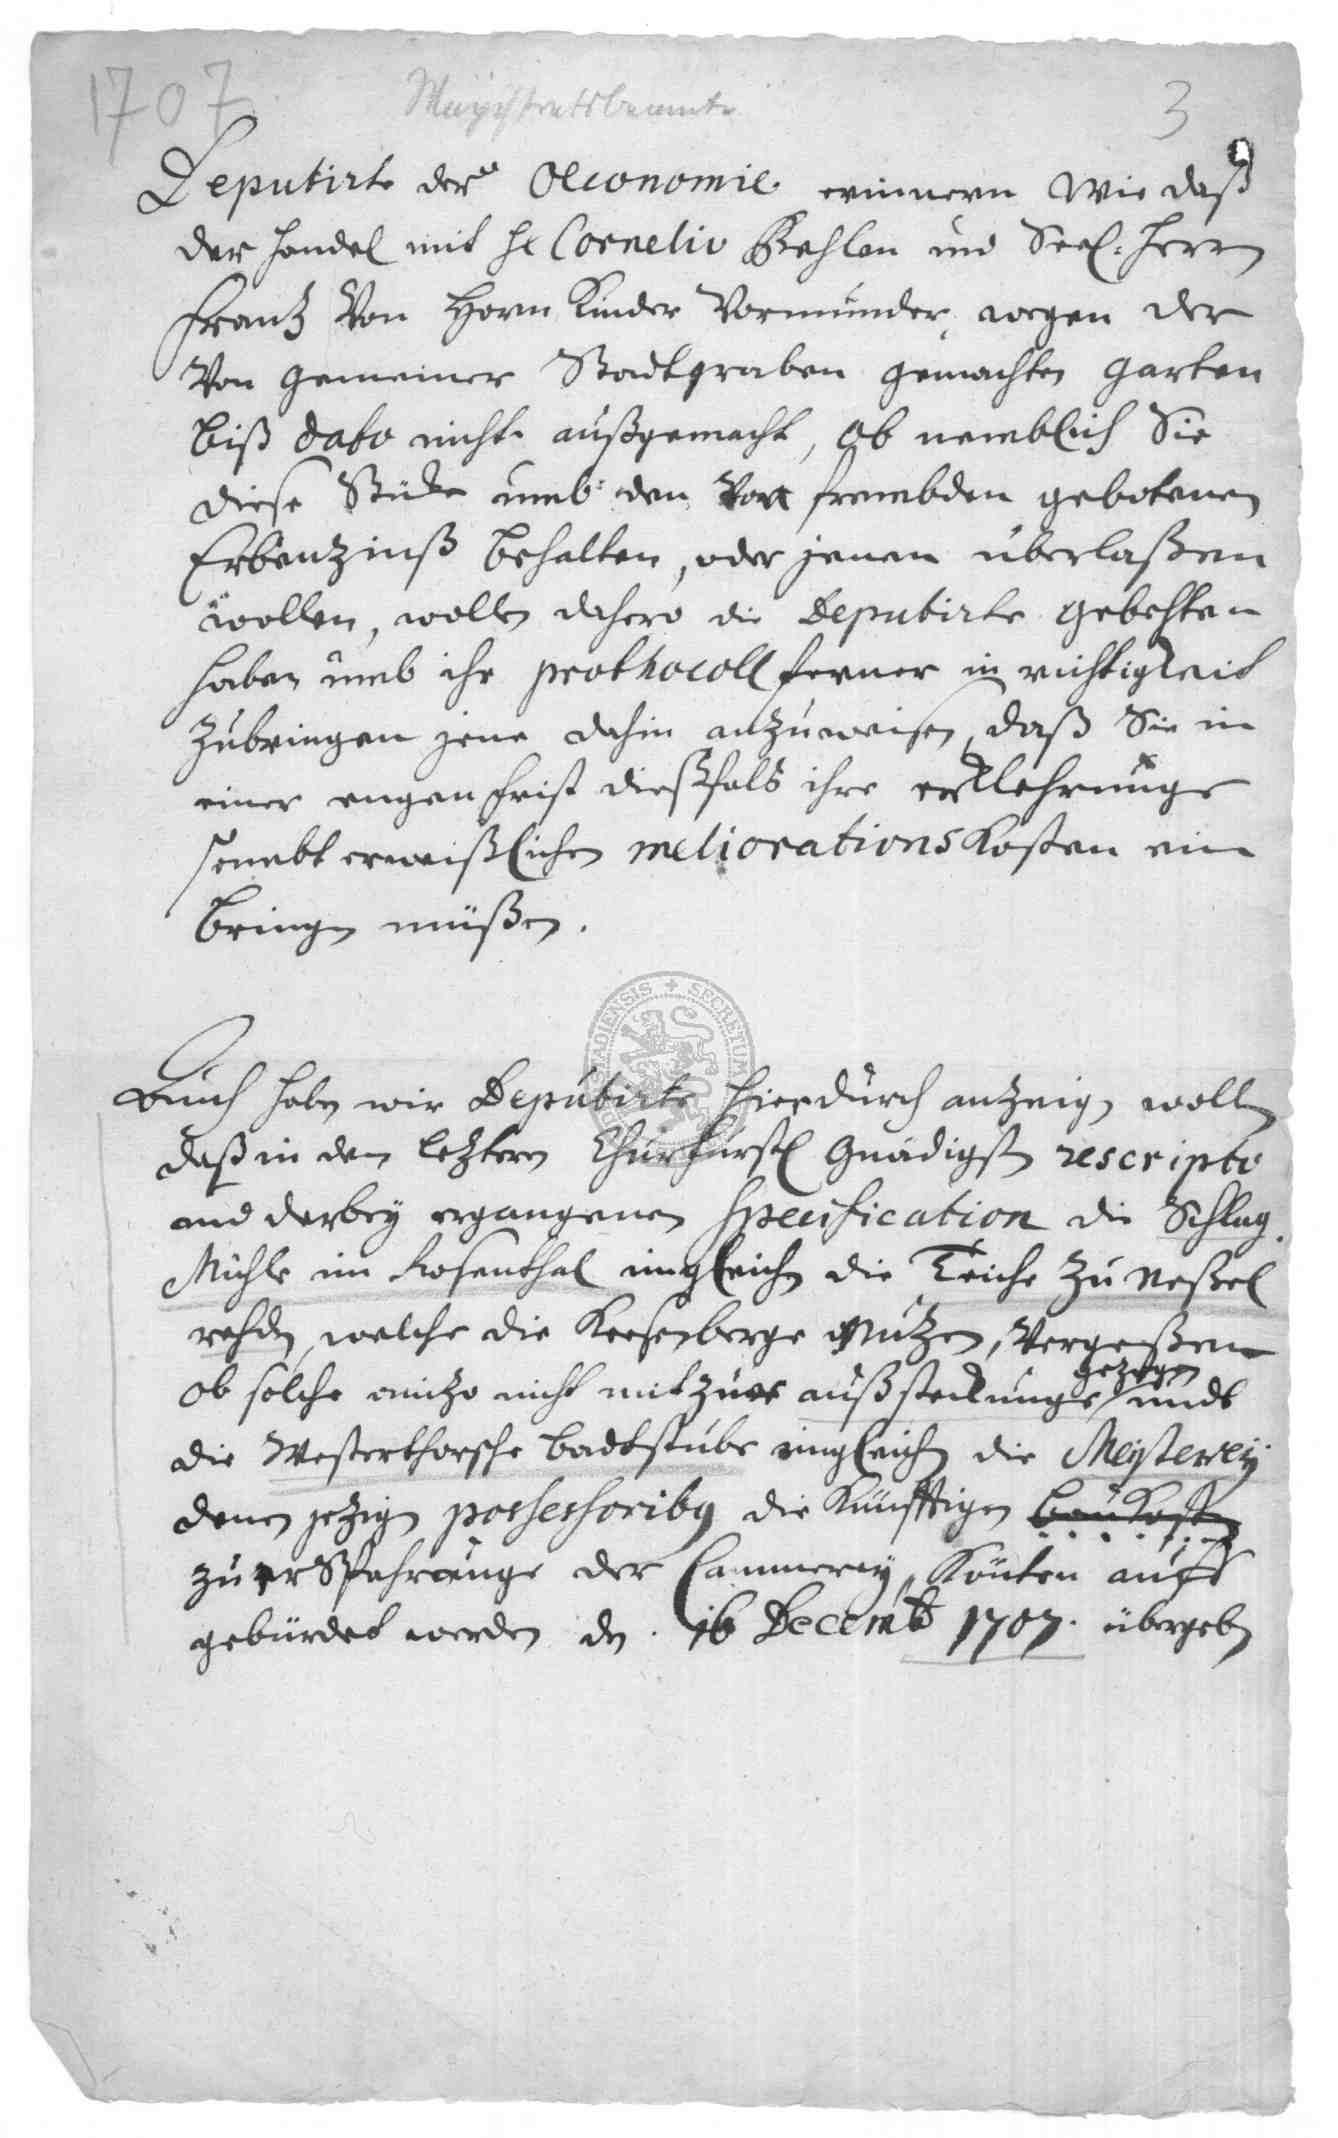 1707. Magistratsbeamte 3
Deputirte der Oeconomie erinnern Wie daß
der handel mit H. Cornelio Behlen und Seel: Herrn
Frantz Von Horn Kinder Vormünder, wegen der
Von gemeiner Stadtgraben gemachten garten
biß dato nicht außgemacht, ob nemblich Sie
diese Stücke umb den Von frembden gebotenen
Erbenzinß behalten, oder jenen überlaßen
wollen, wollen dahero die Deputirte gebehten
haben umb ihr prothocoll ferner in richtigkeit
zubringen jene dahin anzuweisen, daß Sie in
einer engen frist dießfals ihre erklehrunge
sambt erweißlichen meliorations Kosten ein
bringen müßen.
Auch haben wir Deputirte hierdurch anzeigen wollen
daß in dem letztern Churfürstl Gnädigsten rescripto
und darbey ergangenen specification die Schlag
Mühle im Rosenthal imgleichen die Teiche zu Neßel
rehden, welche die Kersenberge Nutzen, Vergeßen
ob solche anitzo nicht mit zur außsteckunge gezogen undt
die Westerthorsche badtstube imgleichen die Meisterey
denen jetzigen possessoribus die Künfftigen baukosten
zu erspahrunge der Cammerey, Könten auff
gebürdet werden den. 16 Decemb 1707. übergeben
SECRETUM